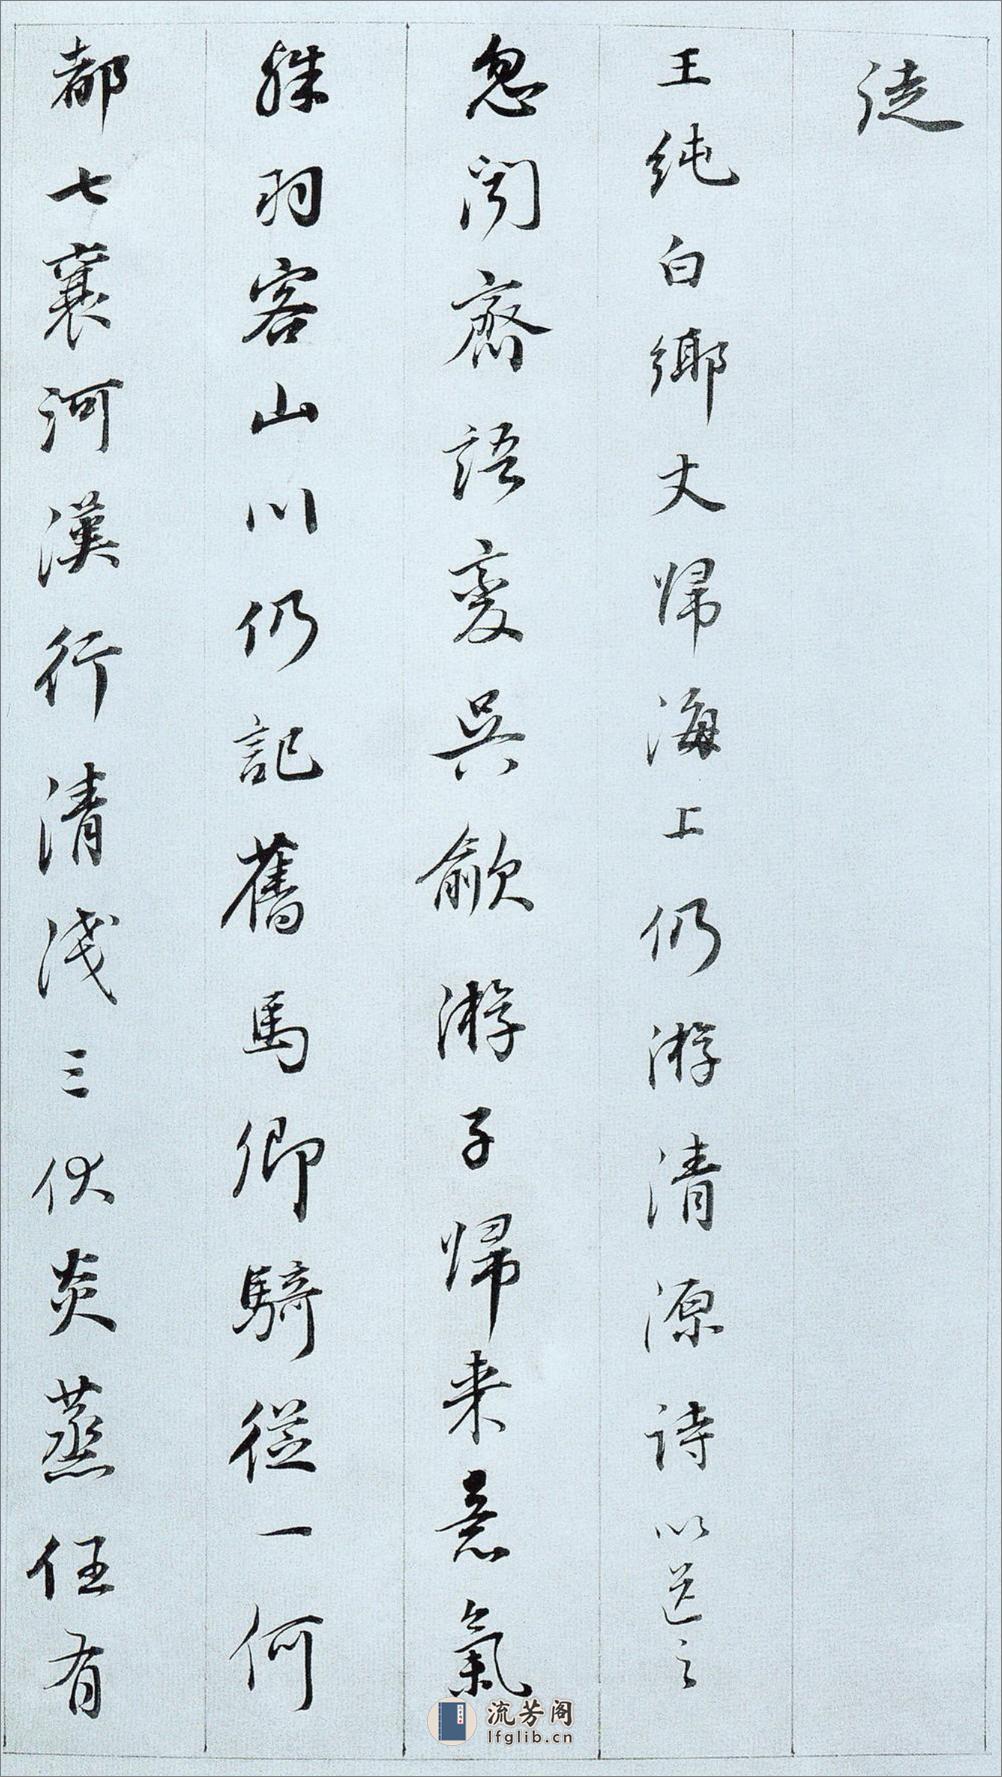 徒
王纯白鄉丈帰海上仍游清源诗以送之
忽闻齋語变吴歈游子帰来意氣
殊羽客山川仍記舊馬卿騎從一何
都七襄河漢行清浅三伏炎蒸任有
流芳阁
lfglib.cn